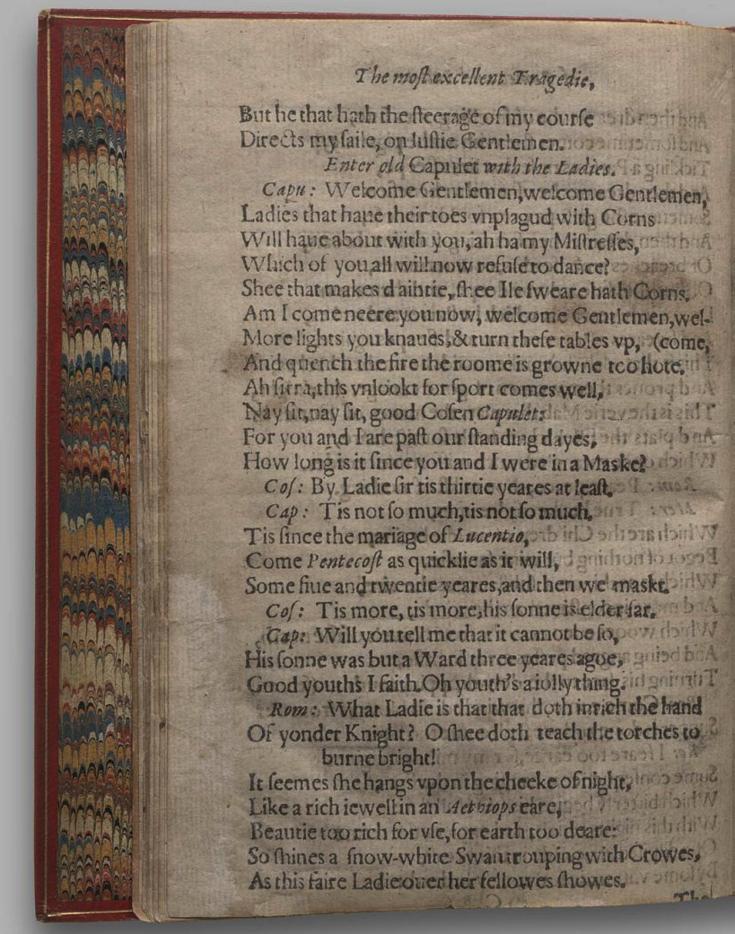 The moſt excellent Tragedie,
But he that hath the ſteerage of my courſe
Directs my ſaile, on luſtie Gentlemen.
Enter old Capulet with the Ladies.
Capu: Welcome Gentlemen, welcome Gentlemen,
Ladies that haue their toes vnplagud with Corns
Will haue about with you, ah ha my Miſtreſſes,
Which of you all will now refuſe to dance?
Shee that makes daintie, ſhee Ile ſweare hath Corns.
Am I come neere you now, welcome Gentlemen, wel-
More lights you knaues, & turn theſe tables vp, (come,
And quench the fire the roome is growne too hote.
Ah ſirra, this vnlookt for ſport comes well,
Nay ſit, nay ſit, good Coſen Capulet:
For you and I are paſt our ſtanding dayes,
How long is it ſince you and I were in a Maske?
Coſ: By Ladie ſir tis thirtie yeares at leaſt.
Cap: Tis not ſo much, tis not ſo much,
Tis ſince the mariage of Lucentio,
Come Pentecoſt as quicklie as it will,
Some fiue and twentie yeares, and then we maskt.
Coſ: Tis more, tis more, his ſonne is elder far.
Cap: Will you tell me that it cannot be ſo,
His ſonne was but a Ward three yeares agoe,
Good youths I faith. Oh youth's a iolly thing.
Rom: What Ladie is that that doth inrich the hand
Of yonder Knight? O ſhee doth teach the torches to
burne bright!
It ſeemes ſhe hangs vpon the cheeke of night,
Like a rich iewell in an Aethiops eare,
Beautie too rich for vſe, for earth too deare:
So ſhines a ſnow-white Swan trouping with Crowes,
As this faire Ladie ouer her fellowes ſhowes.